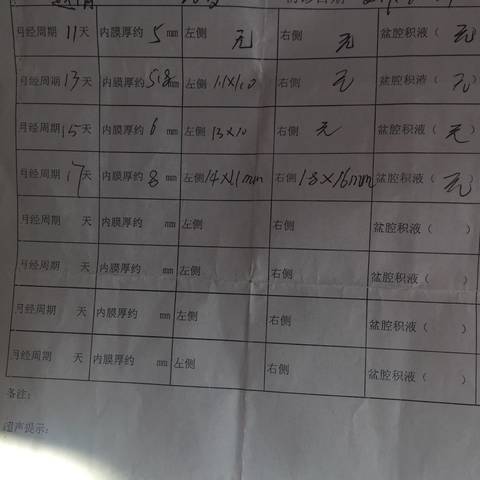 月经周期 11 天 内膜厚约 5 mm 左侧 无 右侧 无 盆腔积液（ 无
月经周期 13 天 内膜厚约 5.8 mm 左侧 11×10 右侧 无 盆腔积液（ 无 ）
月经周期 15 天 内膜厚约 6 mm 左侧 13×10 右侧 无 盆腔积液（ 无
月经周期 17 天 内膜厚约 8 mm 左侧 14×11mm 右侧 18×16mm 盆腔积液（ 无
月经周期 天 内膜厚约 mm 左侧 右侧 盆腔积液（ ）
月经周期 天 内膜厚约 mm 左侧 右侧 盆腔积液（ ）
月经周期 天 内膜厚约 mm 左侧 右侧 盆腔积液（ ）
月经周期 天 内膜厚约 mm 左侧 右侧 盆腔积液（ ）
备注：
超声提示：